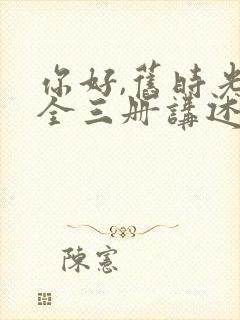 你好,舊時光
全三册講述
陳憲